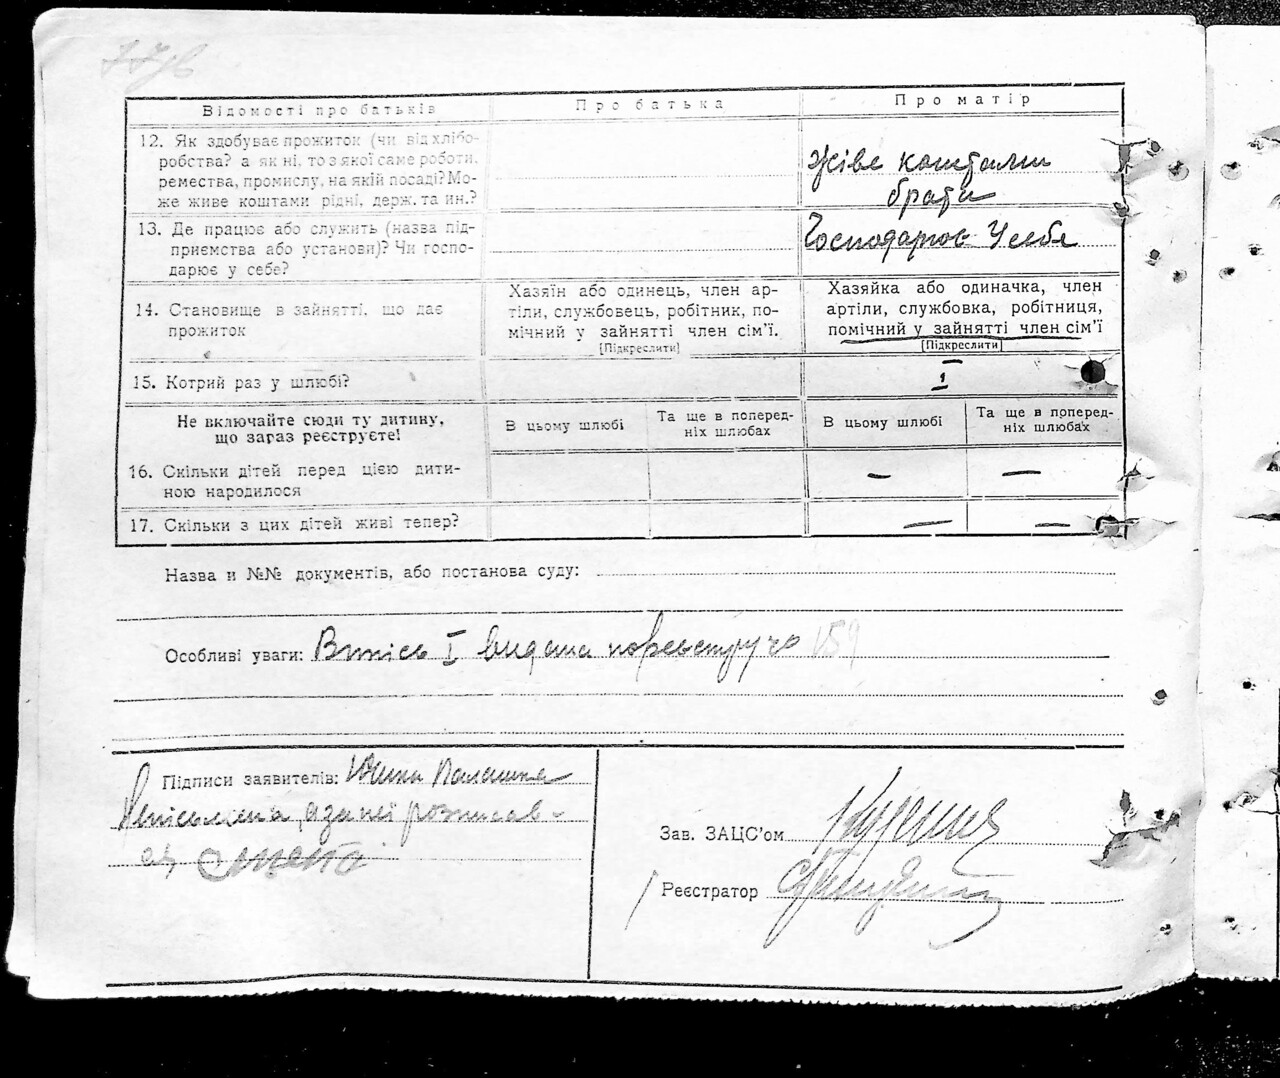 77зв
Відомості про батьків
Про батька
Про матір
12. Як здобуває прожиток (чи від хлібо-
робства? а як ні, то з якої саме роботи,
ремества, промислу, на якій посаді? Мо-
же живе коштами рідні, держ. та ин.?
Живе коштами
брата
13. Де працює або служить (назва під-
приємства або установи)? Чи госпо-
дарює у себе?
Господарює У себе
14. Становище в зайнятті, що дає
прожиток
Хазяїн або одинець, член ар-
тіли, службовець, робітник, по-
мічний у зайнятті член сім'ї.
[Підкреслити]
Хазяйка або одиначка, член
артіли, службовка, робітниця,
помічний у зайнятті член сім'ї
[Підкреслити]
15. Котрий раз у шлюбі?
І
Не включайте сюди ту дитину,
що зараз реєструєте!
В цьому шлюбі
Та ще в поперед-
ніх шлюбах
В цьому шлюбі
Та ще в поперед-
ніх шлюбах
16. Скільки дітей перед цією дити-
ною народилося
— —
17. Скільки з цих дітей живі тепер?
— —
Назва и №№ документів, або постанова суду:
Особливі уваги: Випісь І видана по реєстру чо 159
Підписи заявителів:
Неписьмена, а за неї розписав-
ся
Зав. ЗАЦС'ом
Реєстратор